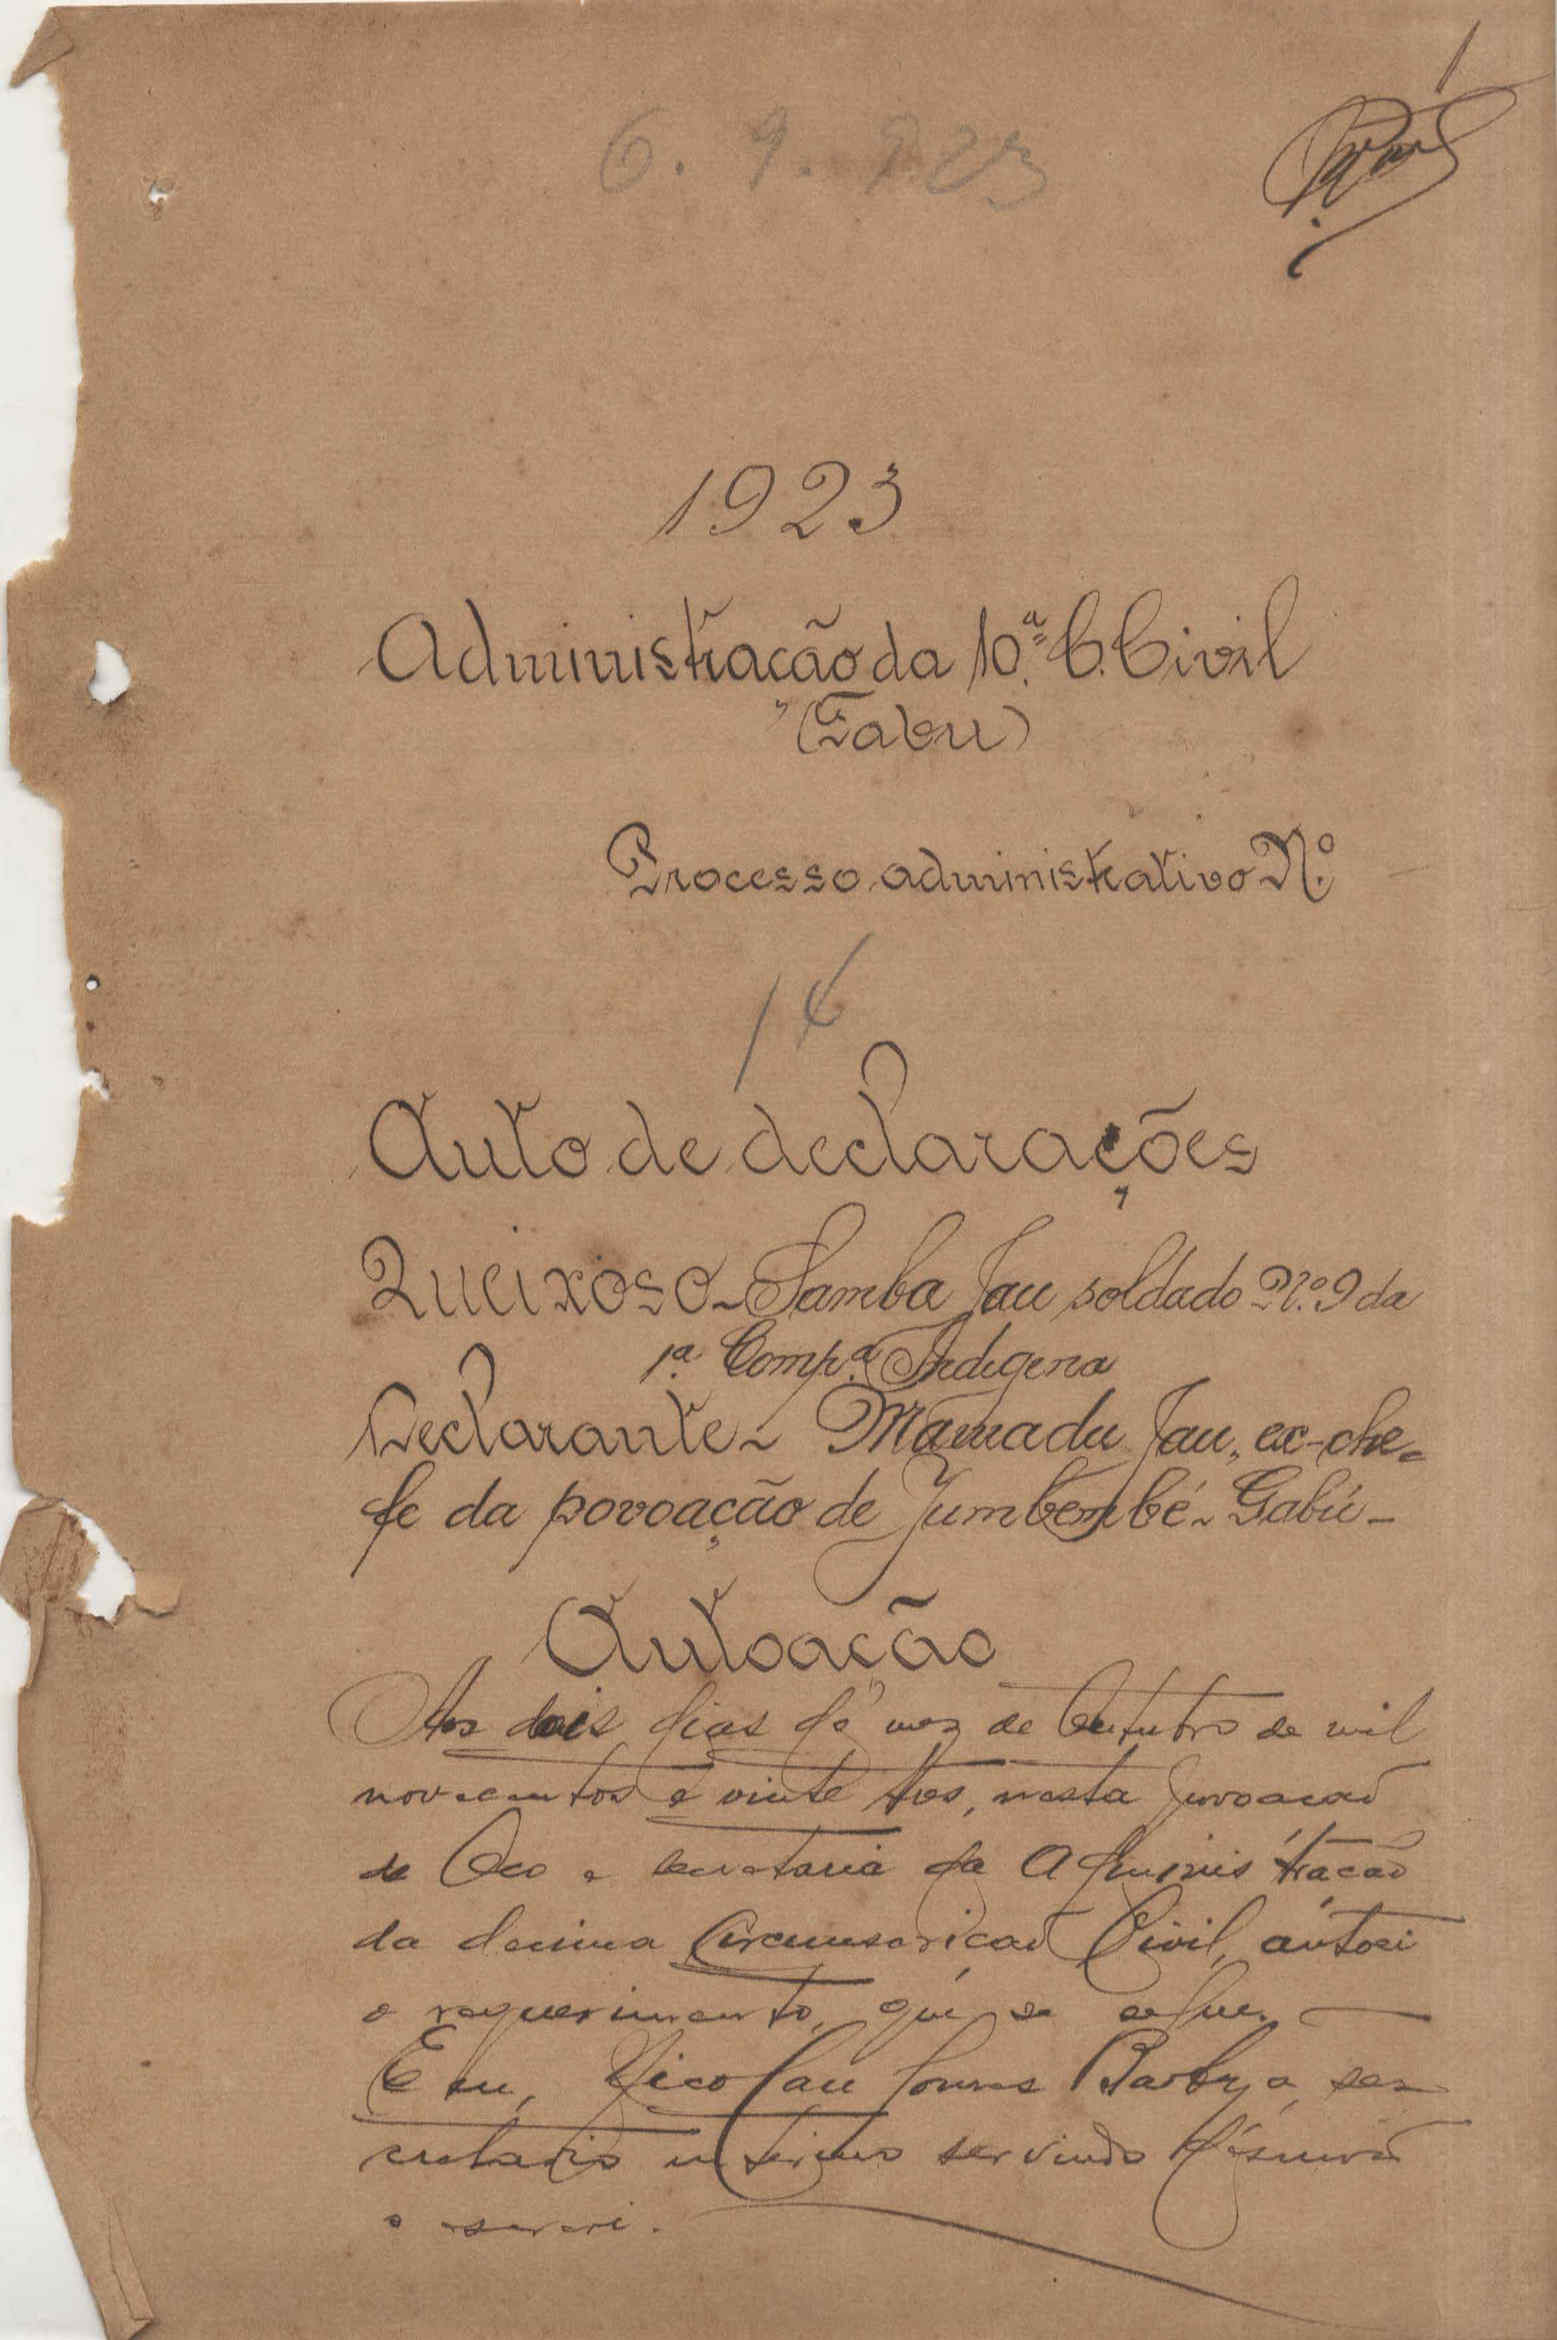 1
6.9.923
1923
Administração da 10.ª C. Civil
(Gabu)
Processo administrativo N.º
14
Auto de declarações
Queixoso - Samba Jau soldado N.º 9 da
1.ª Comp.ª Indigena
Declarante - Mamadu Jau, ex-che-
fe da povoação de Jumbembé - Gabú -
Autoação
Aos dois dias do mez de Outubro de mil
novecentos e vinte tres, nesta povoação
de Oco e secretaria da Administração
da decima Circumscrição Civil, autoei
o requerimento, que se segue. —
Eu, Nicolau Gomes Barbosa, se-
cretario interino servindo d'escrivão
o escrevi.